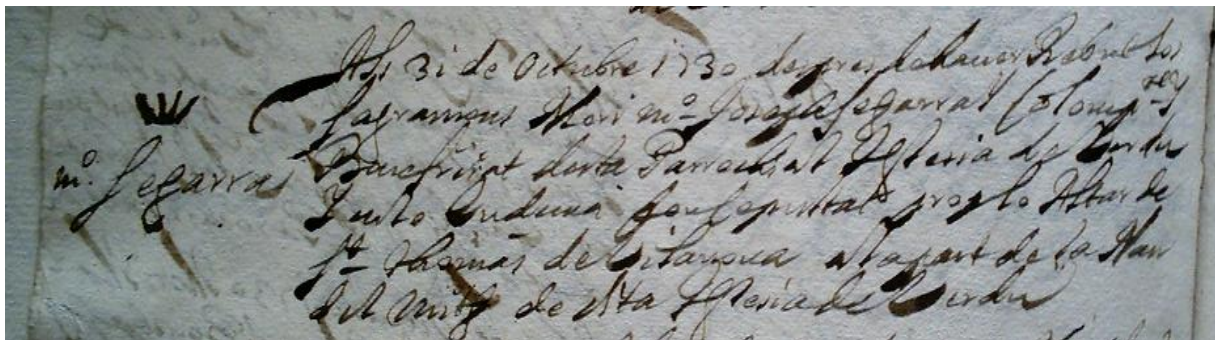 Als 31 de Octubre 1730 despres de haver Rebut los
Sagraments Mori mº Joseph Segarra y Colom pre y
mº. Segarra Beneficiat desta Parroquial Iglesia de Verdu
y en lo endema fou sepultat prop lo Altar de
St. Thomas de Vilanova a la part de la Nau
del mitg de dita Iglesia de Verdu